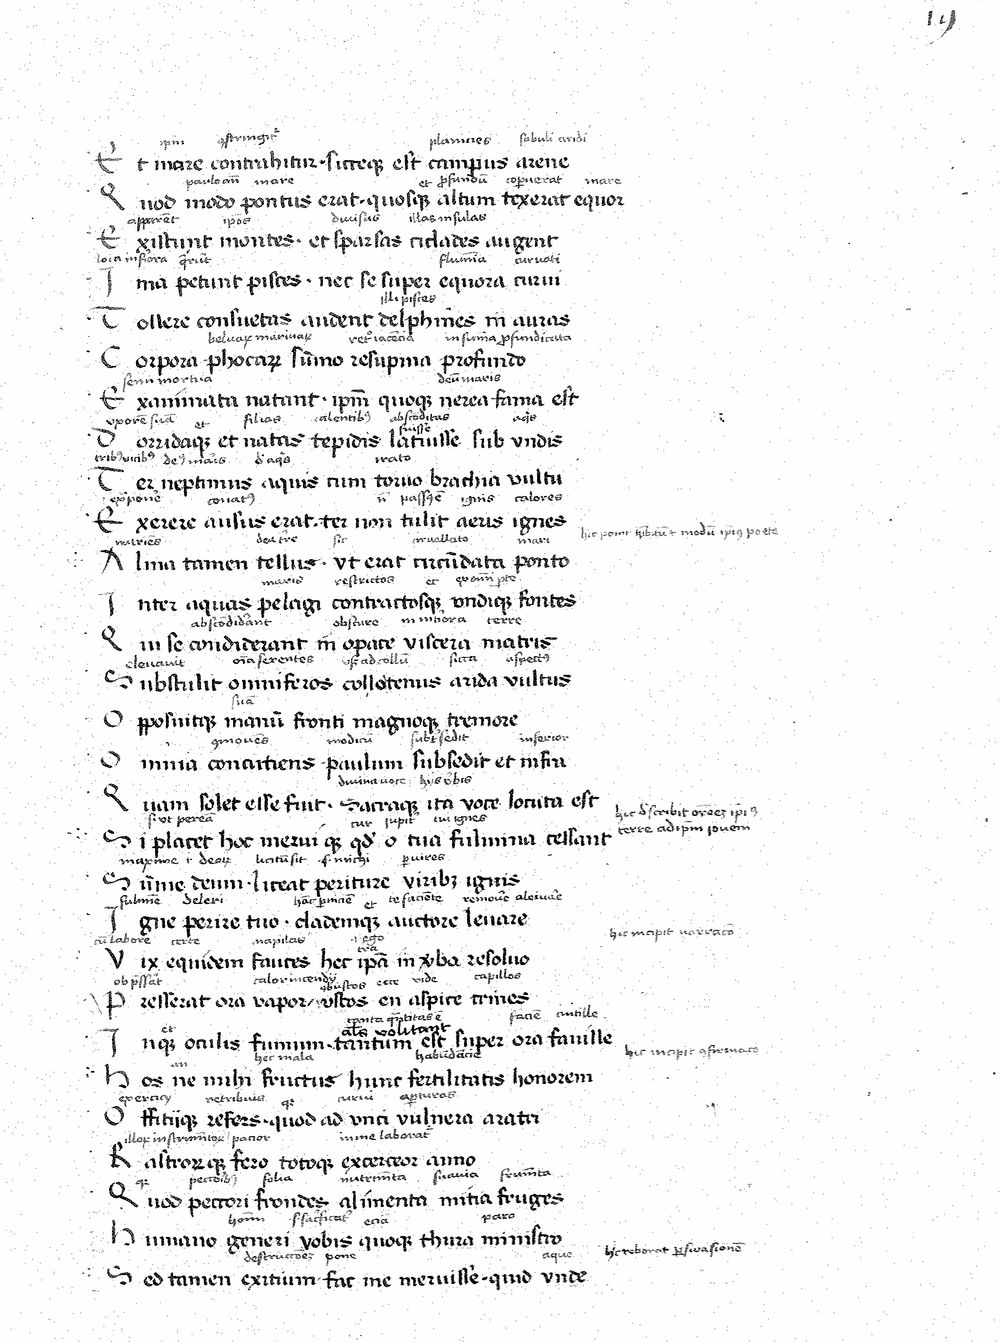 19
ipm̄ ꝯstringit᷑ planicies sabuli aridi
Et mare contrahitur · sicceqꝫ est campus arene
paulo an̄ mare et ꝓfundū coꝑuerat mare
Quod modo pontus erat · quosqꝫ altum texerat equor
apparēt ip̄os diuisus illas insulas
Existunt montes · et sparsas ciclades augent
loca inferiora q̄rūt flumīa curuati
Ima petunt pisces · nec se super equora curui
illi pisces
Tollere consuetas audent delphines in auras
beluaꝝ marinaꝝ insuma ꝓfunditata
Corpora phocaꝝ sūmo resupina profundo
semi mortua deū maris
Exanimata natant · ipm̄ quoqꝫ nerea fama est
uxorē suā et filias calentibꝫ abscōditas aq̄s
fuisse
Doridaqꝫ et natas tepidis latuisse sub vndis
tribꝫ uicibꝫ irato
Ter neptunus aquis cum toruo brachia vultu
exponē conatꝫ n̄ passꝫ ē ignis calores
Exerere ausus erat · ter non tulit aeris ignes
sic circūllato mari
Alma tamen tellus · vt erat circūdata ponto
maris restrictos et ex om̄i ꝑte
Inter aquas pelagi contractosqꝫ vndiqꝫ fontes
abscōdid᷑ant obscure in inferiora terre
Qui se condiderant in opace viscera matris
eleuauit om̄a ferentes vsqꝫ ad collū sicca aspectꝫ
Substulit omniferos collotenus arida vultus
suā
Opposuitqꝫ manū fronti magnoqꝫ tremore
ꝯmouēs modicū subt᷑sedit inferior
Omnia concutiens paulum subsedit et infra
diuina uoce hijs v᷑bis
Quam solet esse fuit · Sacraqꝫ ita voce locuta est
si vt pereā cur iupit᷑ tui ignes
Si placet hoc merui qꝫ qd̄ o tua fulmina cessant
maxime deoꝝ licitū sit michi ꝑ uires
Sūme deum · liceat periture viribꝫ ignis
fulmīe deleri et te faciēte
Igne perire tuo · clademqꝫ auctore leuare
cū labore certe maxillas ego
Vix equidem fauces hec ipā in v᷑ba resoluo
calor incendij ꝯbustos ecce vide capillos
Presserat ora vapor · vstos en aspice crines
et tanta quātitas ē faciē cintille
als volitant
Inqꝫ oculis fumum · tantum est super ora fauille
hec mala habūdācie
Hos ne mihi fructus hunc fertilitatis honorem
exercicij retribuis qꝫ curui aperturas
Officijqꝫ refers · quod ad vnci vulnera aratri
illoꝝ instrumētoꝝ pacior in me laborat᷑
Rastroꝝqꝫ fero totoqꝫ exerceor anno
pecoribꝫ folia nutrimēta suauia frumēta
Quod peccori frondes alimenta mitia fruges
homī eciā paro
Humano generi vobis quoqꝫ thura ministro
destruccōeꝫ pone aque
Sed tamen exitium fac me meruisse · quid vnde
hic incipit narracō
hic incipit ꝯfirmacō